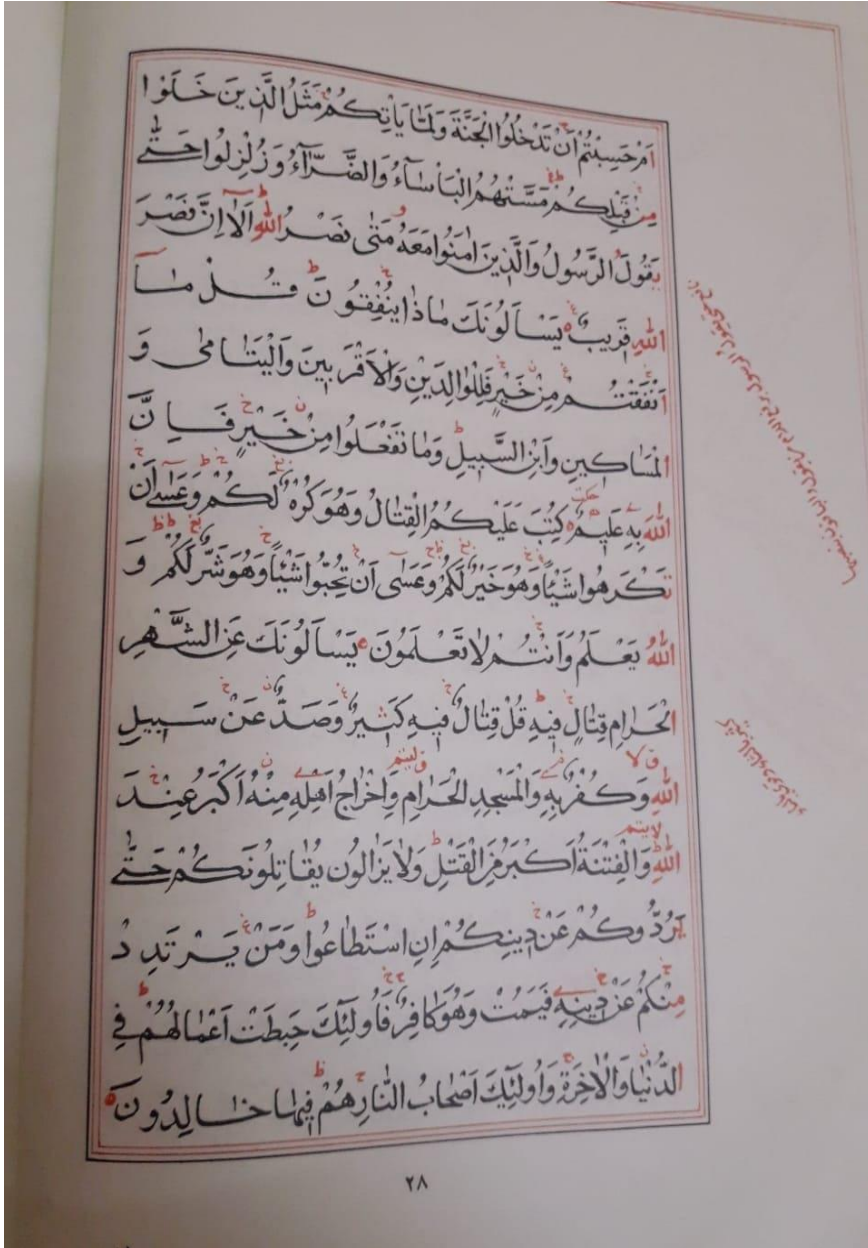 اَمْ حَسِبْتُمْ اَنْ تَدْخُلُوا الْجَنَّةَ وَلَمَّا يَاْتِكُمْ مَثَلُ الَّذِينَ خَلَوْا
مِنْ قَبْلِكُمْ مَسَّتْهُمُ الْبَاْسَاۤءُ وَالضَّرَّاۤءُ وَزُلْزِلُوا حَتّٰى
يَقُولَ الرَّسُولُ وَالَّذِينَ اٰمَنُوا مَعَهُ مَتٰى نَصْرُ اللّٰهِ اَلَا اِنَّ نَصْرَ
اللّٰهِ قَرِيبٌ يَسْاَلُونَكَ مَاذَا يُنْفِقُونَ قُلْ مَاۤ
اَنْفَقْتُمْ مِنْ خَيْرٍ فَلِلْوَالِدَيْنِ وَالْاَقْرَبِينَ وَالْيَتَامٰى وَ
الْمَسَاكِينِ وَابْنِ السَّبِيلِ وَمَا تَفْعَلُوا مِنْ خَيْرٍ فَاِنَّ
اللّٰهَ بِهِ عَلِيمٌ كُتِبَ عَلَيْكُمُ الْقِتَالُ وَهُوَ كُرْهٌ لَكُمْ وَعَسٰۤى اَنْ
تَكْرَهُوا شَيْئًا وَهُوَ خَيْرٌ لَكُمْ وَعَسٰۤى اَنْ تُحِبُّوا شَيْئًا وَهُوَ شَرٌّ لَكُمْ وَ
اللّٰهُ يَعْلَمُ وَاَنْتُمْ لَا تَعْلَمُونَ يَسْاَلُونَكَ عَنِ الشَّهْرِ
الْحَرَامِ قِتَالٍ فِيهِ قُلْ قِتَالٌ فِيهِ كَبِيرٌ وَصَدٌّ عَنْ سَبِيلِ
اللّٰهِ وَكُفْرٌ بِهِ وَالْمَسْجِدِ الْحَرَامِ وَاِخْرَاجُ اَهْلِهِ مِنْهُ اَكْبَرُ عِنْدَ
اللّٰهِ وَالْفِتْنَةُ اَكْبَرُ مِنَ الْقَتْلِ وَلَا يَزَالُونَ يُقَاتِلُونَكُمْ حَتّٰى
يَرُدُّوكُمْ عَنْ دِينِكُمْ اِنِ اسْتَطَاعُوا وَمَنْ يَرْتَدِدْ
مِنْكُمْ عَنْ دِينِهِ فَيَمُتْ وَهُوَ كَافِرٌ فَاُولٰۤئِكَ حَبِطَتْ اَعْمَالُهُمْ فِي
الدُّنْيَا وَالْاٰخِرَةِ وَاُولٰۤئِكَ اَصْحَابُ النَّارِ هُمْ فِيهَا خَالِدُونَ
٢٨